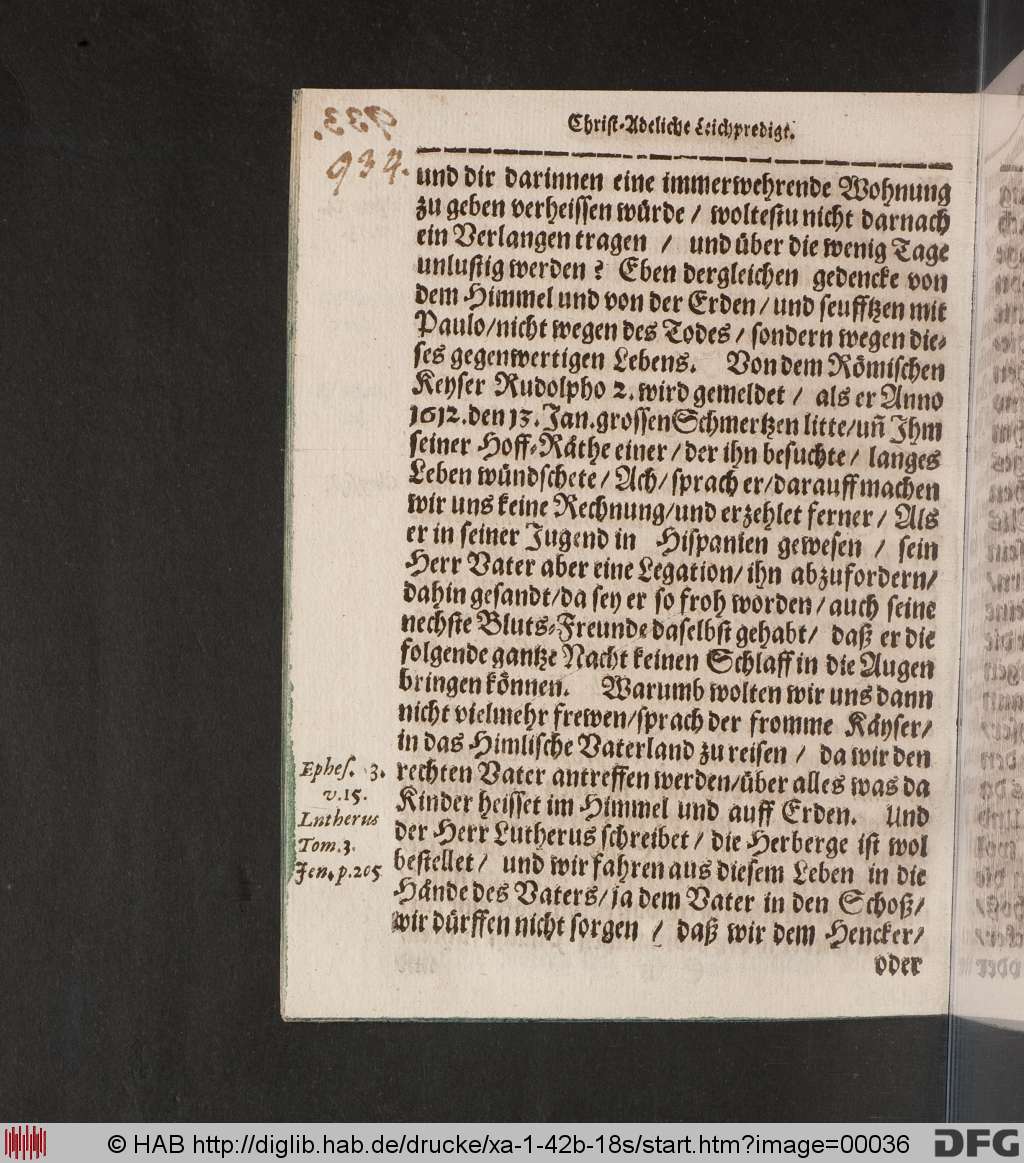 933.
934.
Christ-Adeliche Leichpredigt.
und dir darinnen eine immerwehrende Wohnung
zu geben verheissen würde / woltestu nicht darnach
ein Verlangen tragen / und über die wenig Tage
unlustig werden? Eben dergleichen gedencke von
dem Himmel und von der Erden / und seufftzen mit
Paulo/nicht wegen des Todes / sondern wegen die-
ses gegenwertigen Lebens. Von dem Römischen
Keyser Rudolpho 2. wird gemeldet / als er Anno
1612. den 13. Jan. grossen Schmertzen litte/uñ Ihm
seiner Hoff-Räthe einer / der ihn besuchte / langes
Leben wündschete / Ach / sprach er/darauff machen
wir uns keine Rechnung/und erzehlet ferner / Als
er in seiner Jugend in Hispanien gewesen / sein
Herr Vater aber eine Legation/ ihn abzufordern/
dahin gesandt/da sey er so froh worden / auch seine
nechste Bluts-Freunde daselbst gehabt / daß er die
folgende gantze Nacht keinen Schlaff in die Augen
bringen können. Warumb wolten wir uns dann
nicht vielmehr frewen/sprach der fromme Käyser/
in das Himlische Vaterland zu reisen / da wir den
rechten Vater antreffen werden/über alles was da
Kinder heisset im Himmel und auff Erden. Und
der Herr Lutherus schreibet / die Herberge ist wol
bestellet / und wir fahren aus diesem Leben in die
Hände des Vaters/ ja dem Vater in den Schoß/
wir dürffen nicht sorgen / daß wir dem Hencker/
oder
Ephes. 3.
v.15.
Lntherus
Tom.3.
Jen. p.205
© HAB http://diglib.hab.de/drucke/xa-1-42b-18s/start.htm?image=00036
DFG